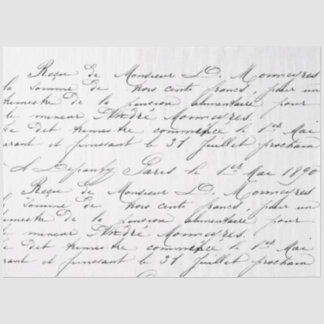 Reçu de Monsieur D. Monnayres
la somme de trois cents francs, pour un
trimestre de la pension alimentaire pour
le mineur André Monnayres.
Le dit trimestre commence le 1er Mai
courant et finissant le 31 Juillet prochain
Paris le 1er Mai 1890
Reçu de Monsieur D. Monnayres
la somme de trois cents francs, pour un
trimestre de la pension alimentaire pour
le mineur André Monnayres.
Le dit trimestre commence le 1er Mai
courant et finissant le 31 Juillet prochain